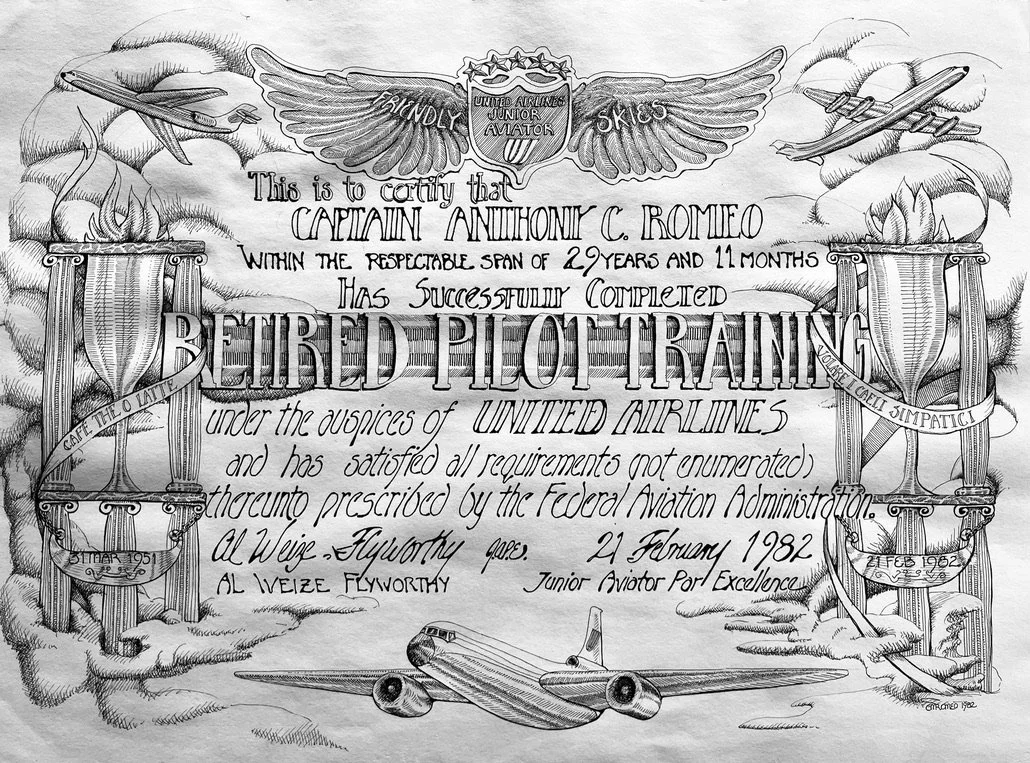 FRIENDLY SKIES
UNITED AIRLINES
JUNIOR
AVIATOR
This is to certify that
CAPTAIN ANTHONY C. ROMEO
WITHIN THE RESPECTABLE SPAN OF 29 YEARS AND 11 MONTHS
HAS SUCCESSFULLY COMPLETED
RETIRED PILOT TRAINING
CAFE THE O LATTE
VOLARE I CAELI SIMPATICI
under the auspices of UNITED AIRLINES
and has satisfied all requirements (not enumerated)
thereunto prescribed by the Federal Aviation Administration.
Al Weize Flyworthy jape. 21 February 1982
AL WEIZE FLYWORTHY Junior Aviator Par Excellence
31 MAR 1951
21 FEB 1982
1982